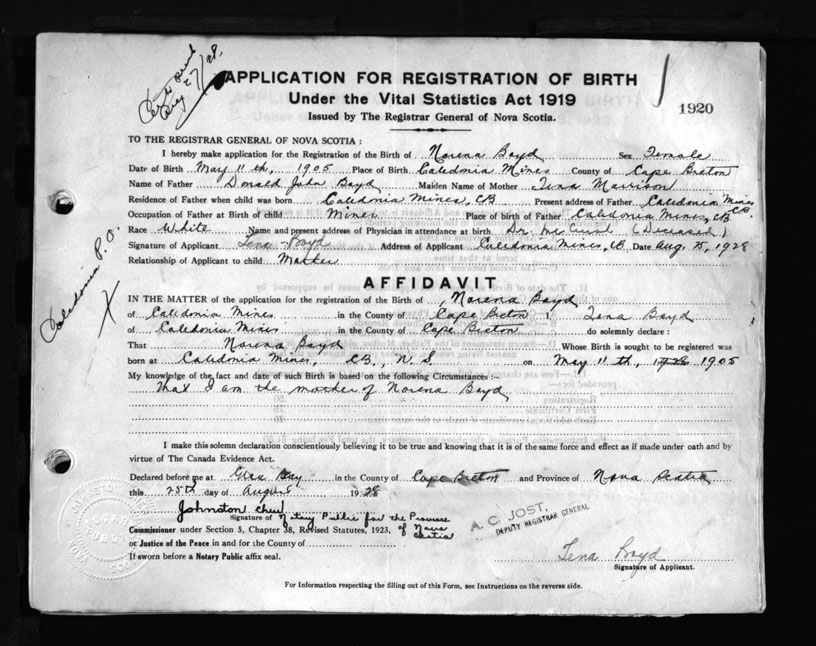 Aug 27/28.
APPLICATION FOR REGISTRATION OF BIRTH
Under the Vital Statistics Act 1919
Issued by The Registrar General of Nova Scotia.
1920
TO THE REGISTRAR GENERAL OF NOVA SCOTIA :
I hereby make application for the Registration of the Birth of Norena Boyd Sex Female
Date of Birth May 11th, 1905 Place of Birth Caledonia Mines County of Cape Breton
Name of Father Donald John Boyd Maiden Name of Mother Tena Morrison
Residence of Father when child was born Caledonia Mines, CB Present address of Father Caledonia Mines CB.
Occupation of Father at Birth of child Miner Place of birth of Father Caledonia Mines, CB
Race White Name and present address of Physician in attendance at birth Dr. (Deceased)
Signature of Applicant Tena Boyd Address of Applicant Caledonia Mines, CB Date Aug 25, 1928
Relationship of Applicant to child Mother
Caledonia P.O.
X
AFFIDAVIT
IN THE MATTER of the application for the registration of the Birth of Norena Boyd
of Caledonia Mines in the County of Cape Breton I Tena Boyd
of Caledonia Mines in the County of Cape Breton do solemnly declare :
That Norena Boyd Whose Birth is sought to be registered was
born at Caledonia Mines, CB., N.S. on May 11th, 1905
My knowledge of the fact and date of such Birth is based on the following Circumstances :—
That I am the mother of Norena Boyd
I make this solemn declaration conscientiously believing it to be true and knowing that it is of the same force and effect as if made under oath and by
virtue of The Canada Evidence Act.
Declared before me at Glace Bay in the County of Cape Breton and Province of Nova Scotia
this 25th day of August 1928
Johnston
Signature of Notary Public for the Province of Nova Scotia
Commissioner under Section 5, Chapter 38, Revised Statutes, 1923,
or Justice of the Peace in and for the County of
If sworn before a Notary Public affix seal.
A. C. JOST,
DEPUTY REGISTRAR GENERAL
Tena Boyd
Signature of Applicant.
For Information respecting the filling out of this Form, see Instructions on the reverse side.